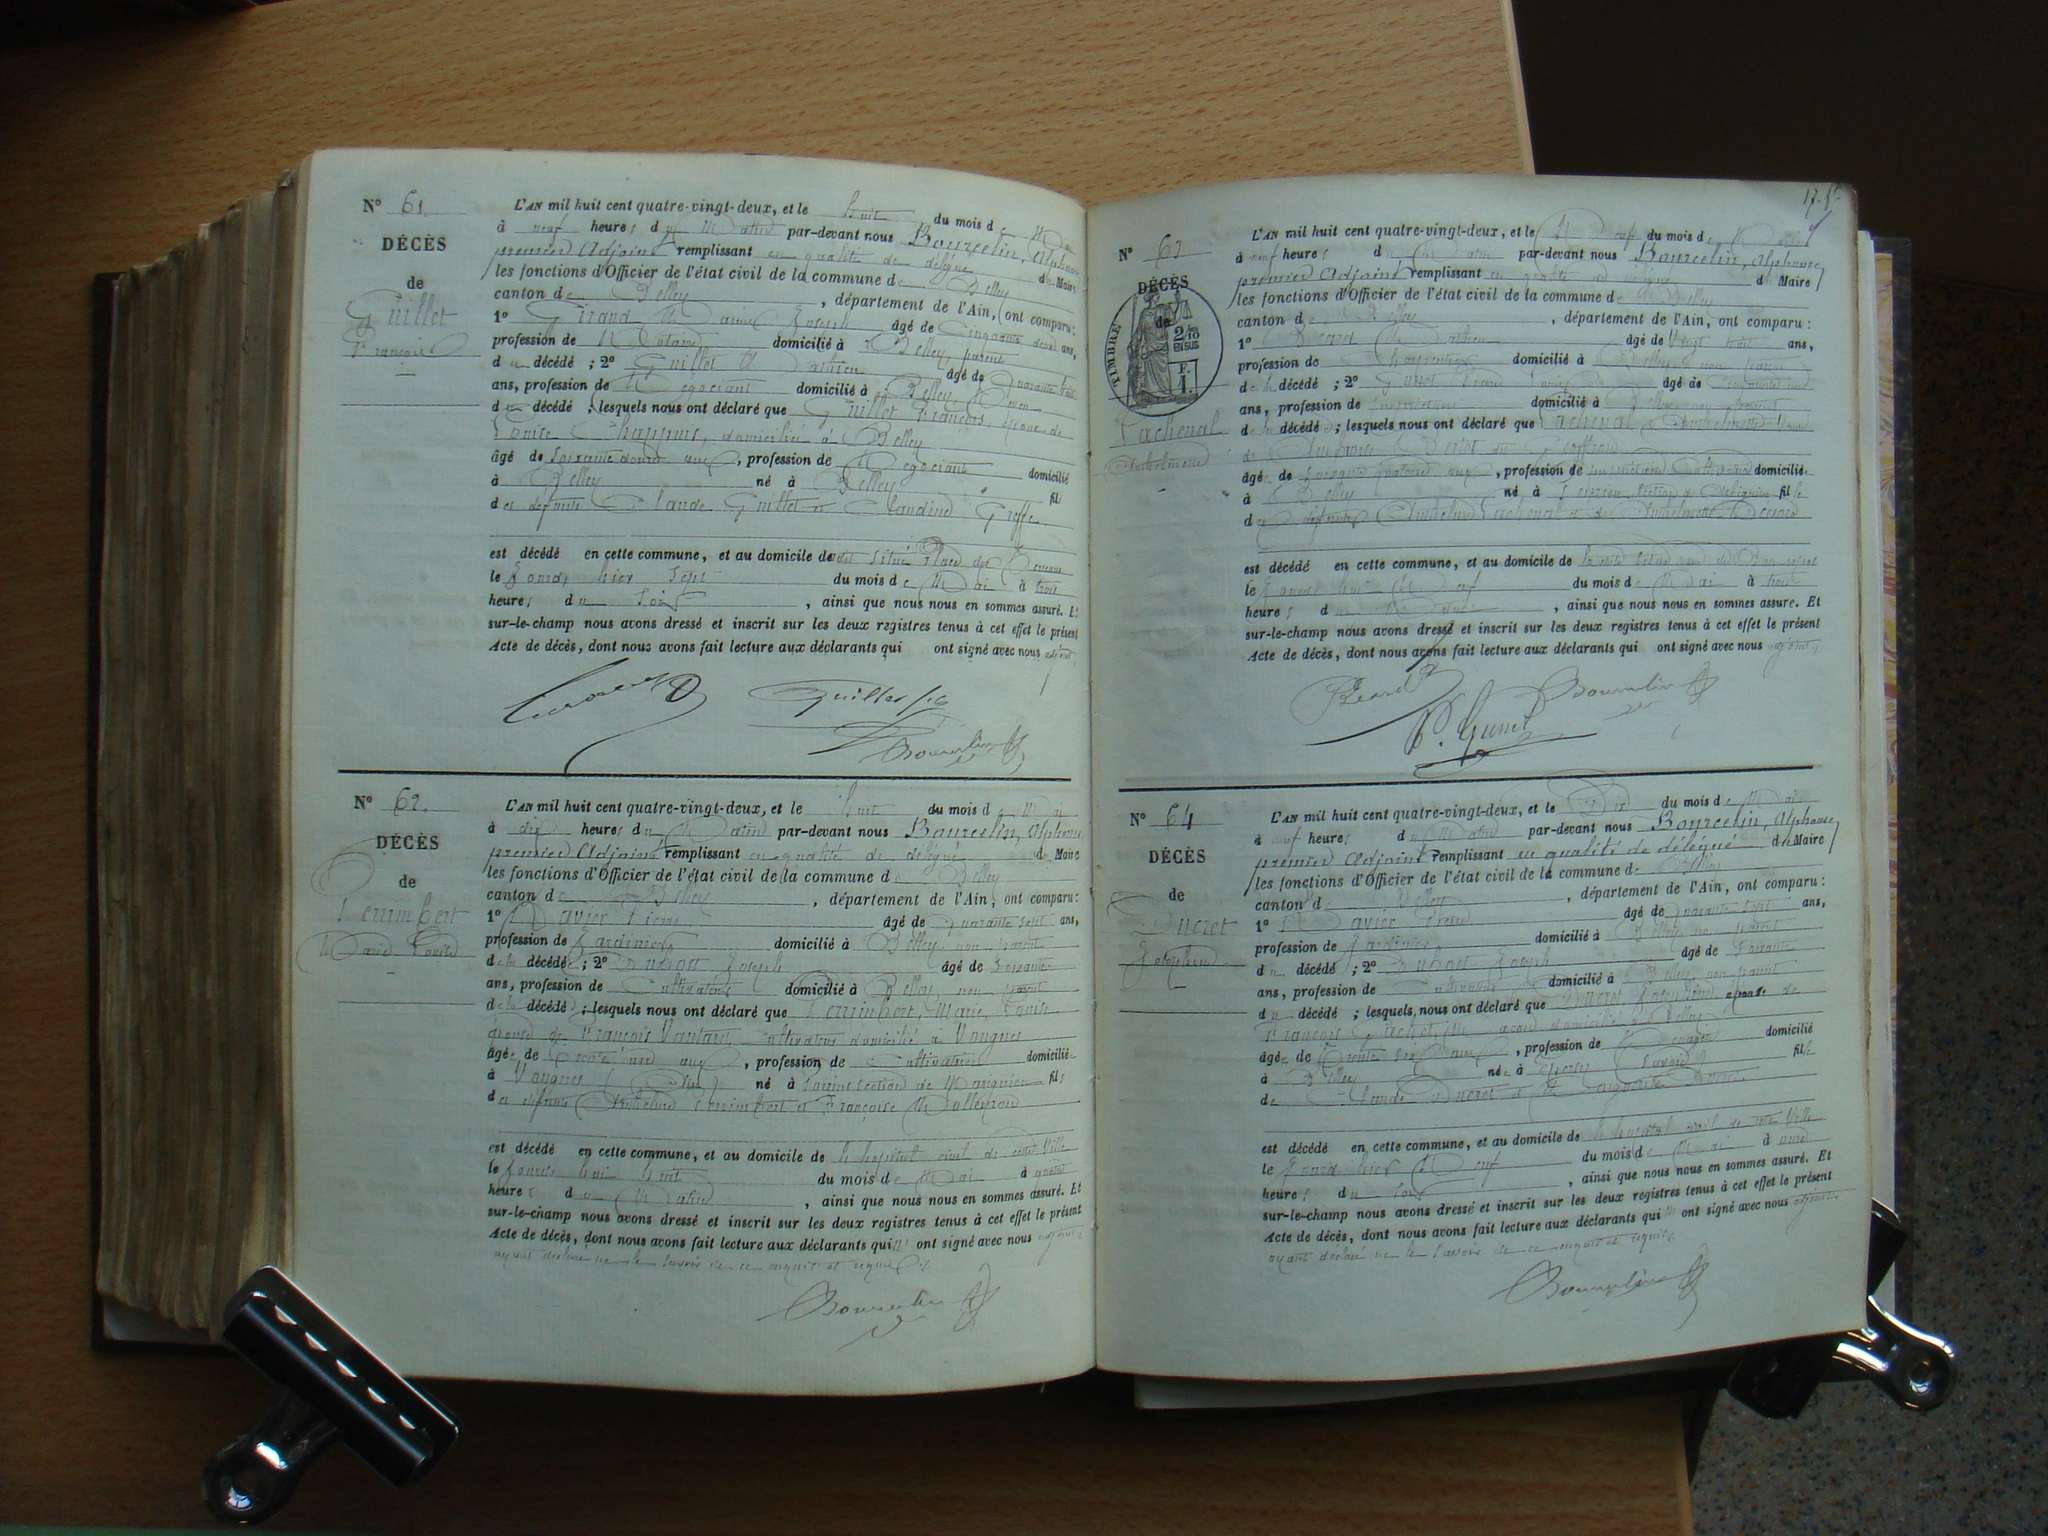 N° 61.
DÉCÈS
de
Guillet
François
L'AN mil huit cent quatre-vingt-deux, et le huit du mois de Mai
à neuf heures du Matin par-devant nous Bourcelin, Alphonse
premier Adjoint remplissant en qualité de délégué du Maire
les fonctions d'Officier de l'état civil de la commune de Belley
canton de Belley, département de l'Ain, ont comparu:
1° Girand Joseph âgé de Cinquante deux ans,
profession de Notaire domicilié à Belley, parent
du décédé; 2° Guillet Mathieu âgé de Quarante huit
ans, profession de Négociant domicilié à Belley,
du décédé; lesquels nous ont déclaré que Guillet François, époux de
Louise Chappuis, domicilié à Belley
âgé de Soixante douze ans, profession de Négociant domicilié
à Belley né à Belley fils
des défunts Claude Guillet et Claudine Greffe
est décédé en cette commune, et au domicile de situé Place des Terreaux
le Jour hier sept du mois de Mai à trois
heures du Soir, ainsi que nous nous en sommes assuré. Et
sur-le-champ nous avons dressé et inscrit sur les deux registres tenus à cet effet le présent
Acte de décès, dont nous avons fait lecture aux déclarants qui ont signé avec nous adjoint.
Guillet
Bourcelin
N° 62.
DÉCÈS
de
Perrimbert
Marie Louise
L'AN mil huit cent quatre-vingt-deux, et le huit du mois de Mai
à dix heures du Matin par-devant nous Bourcelin, Alphonse
premier Adjoint remplissant en qualité de délégué du Maire
les fonctions d'Officier de l'état civil de la commune de Belley
canton de Belley, département de l'Ain, ont comparu:
1° Pierre âgé de Quarante sept ans,
profession de Jardinier domicilié à Belley non parent
de la décédée; 2° Joseph âgé de Soixante
ans, profession de Cultivateur domicilié à Belley non parent
de la décédée; lesquels nous ont déclaré que Perrimbert, Marie, Louise
épouse de François cultivateur domicilié à Vongnes
âgée de Trente neuf ans, profession de Cultivatrice domiciliée
à Vongnes (Ain) née à section de fille
des défunts Anthelme Perrimbert et Françoise
est décédé en cette commune, et au domicile de l'hôpital civil de cette Ville
le Jour hui huit du mois de Mai à quatre
heures du Matin, ainsi que nous nous en sommes assuré. Et
sur-le-champ nous avons dressé et inscrit sur les deux registres tenus à cet effet le présent
Acte de décès, dont nous avons fait lecture aux déclarants qui n' ont signé avec nous adjoint
ayant déclaré ne le savoir de ce enquis et requis
Bourcelin
17.
N° 63
DÉCÈS
de
TIMBRE
2/10 EN SUS
F. 1.
Lacheval
Anthelmette
L'AN mil huit cent quatre-vingt-deux, et le Neuf du mois de Mai
à neuf heures du Matin par-devant nous Bourcelin, Alphonse
premier Adjoint remplissant en qualité de délégué du Maire
les fonctions d'Officier de l'état civil de la commune de Belley
canton de Belley, département de l'Ain, ont comparu:
1° Bécard Mathieu âgé de Vingt huit ans,
profession de Charpentier domicilié à Belley non parent
de la décédée; 2° Gunet âgé de
ans, profession de domicilié à Belley non parent
de la décédée; lesquels nous ont déclaré que Lacheval Anthelmette Veuve
de
âgée de Soixante quatorze ans, profession de domiciliée
à Belley née à section de fille
des défunts Anthelme Lacheval et de Anthelmette
est décédé en cette commune, et au domicile de
le Jour hui Neuf du mois de Mai à trois
heures du Matin, ainsi que nous nous en sommes assuré. Et
sur-le-champ nous avons dressé et inscrit sur les deux registres tenus à cet effet le présent
Acte de décès, dont nous avons fait lecture aux déclarants qui ont signé avec nous adjoint.
Bourcelin
P. Gunet
N° 64
DÉCÈS
de
Ducret
Joséphine
L'AN mil huit cent quatre-vingt-deux, et le Dix du mois de Mai
à neuf heures du Matin par-devant nous Bourcelin, Alphonse
premier Adjoint remplissant en qualité de délégué du Maire
les fonctions d'Officier de l'état civil de la commune de Belley
canton de Belley, département de l'Ain, ont comparu:
1° Pierre âgé de Quarante sept ans,
profession de Jardinier domicilié à Belley non parent
du décédé; 2° Joseph âgé de Soixante
ans, profession de Cultivateur domicilié à Belley, non parent
du décédé; lesquels nous ont déclaré que Ducret Joséphine épouse de
François Maçon domicilié à Belley
âgée de Trente six ans, profession de Ménagère domicilié
à Belley née à Savoie fille
de Claude Ducret et Marguerite
est décédé en cette commune, et au domicile de l'hôpital civil de cette Ville
le Jour hier Neuf du mois de Mai à onze
heures du Soir, ainsi que nous nous en sommes assuré. Et
sur-le-champ nous avons dressé et inscrit sur les deux registres tenus à cet effet le présent
Acte de décès, dont nous avons fait lecture aux déclarants qui n' ont signé avec nous adjoint
ayant déclaré ne le Savoir de ce enquis et requis.
Bourcelin